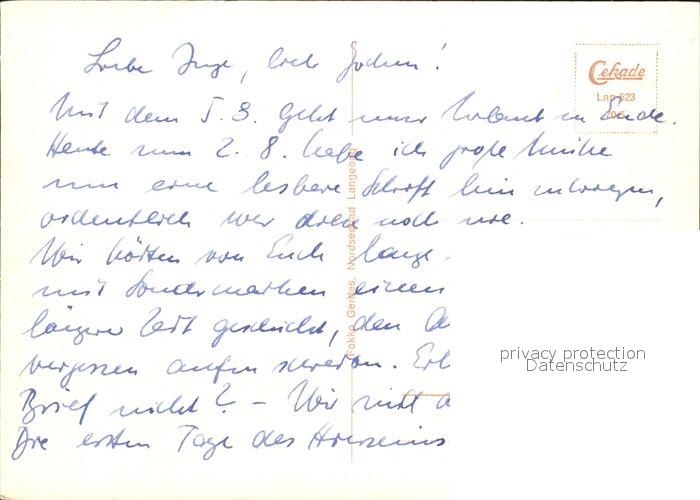 Liebe Inge, lieber Jochen!
Mit dem 5. 8. geht unser Urlaub zu Ende.
Heute zum 2. 8. habe ich große Mühe
um eine lesbare Schrift hin zukriegen,
ordentlich war diese noch nie.
Wir hörten von Euch lange
mit Sondermarken einen
längere Zeit geschickt, den
vergessen aufzuschreiben.
Brief nicht? - Wir sind
Die ersten Tage des Hierseins
Cekade
Lan 523
Fokko Gerdes, Nordseebad Langeoog
privacy protection
Datenschutz